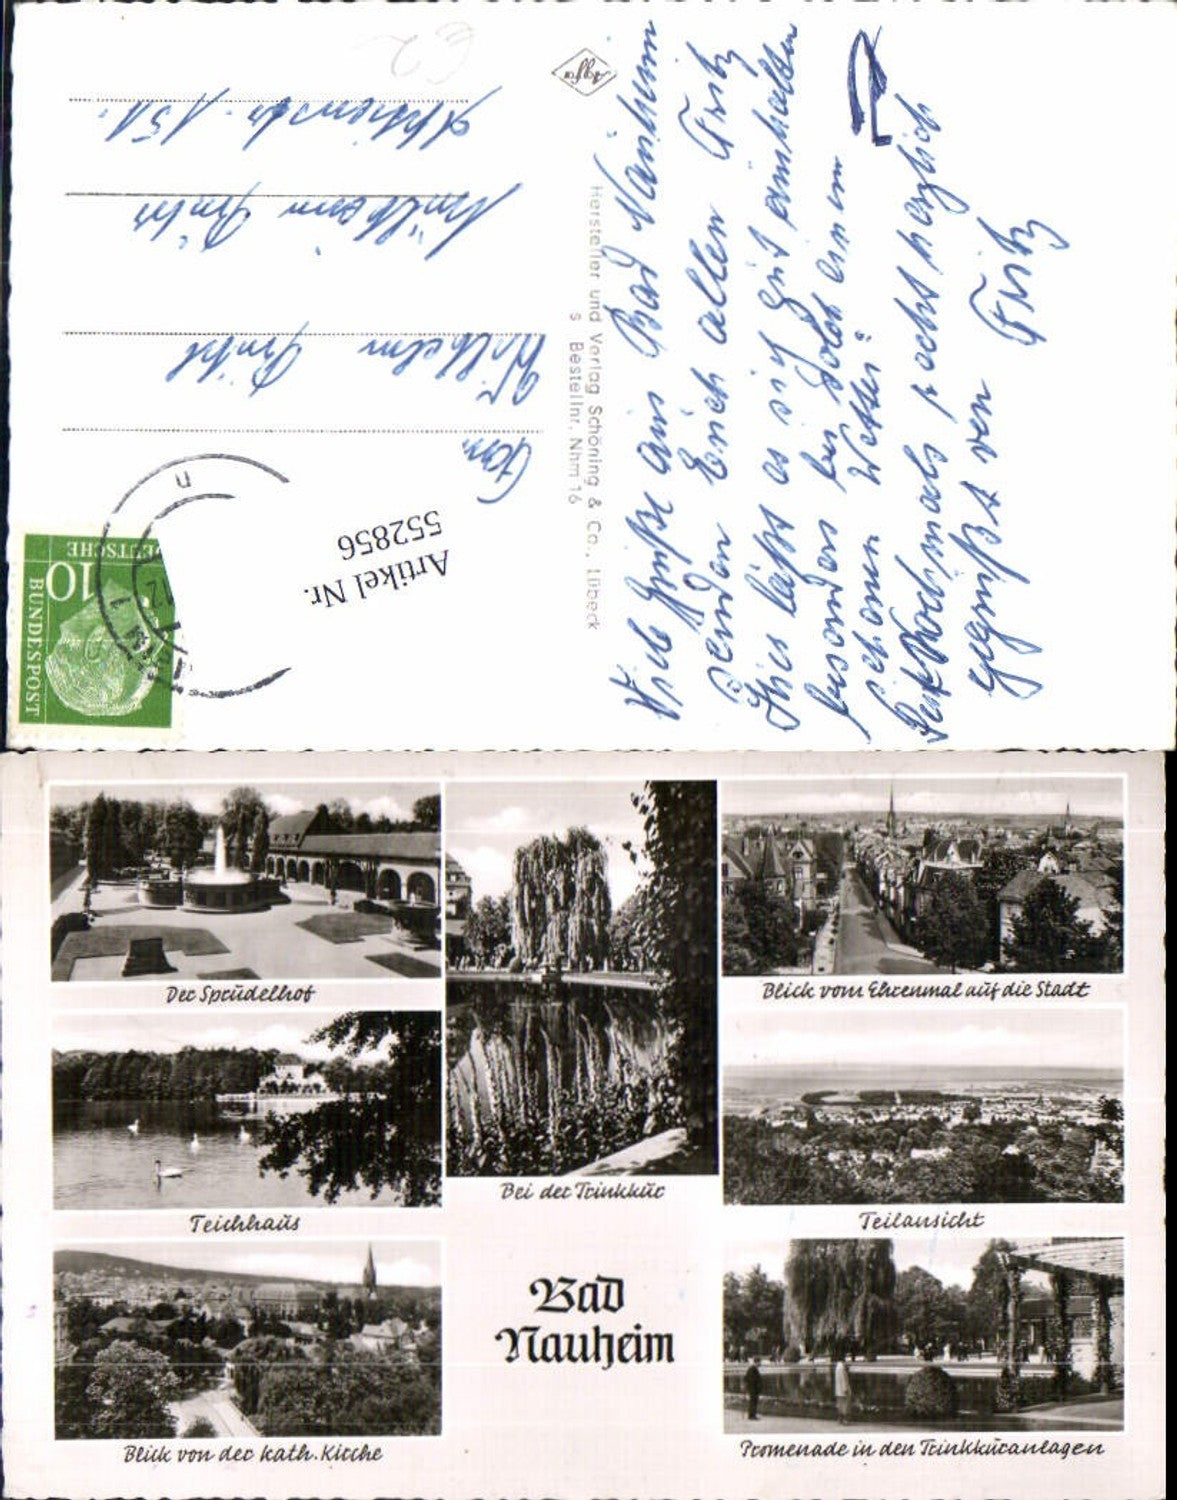 Viele Grüße aus Bad Nauheim
senden Euch allen Fritz
Hier läßt es sich gut aushalten
besonders bei solch einem
schönen Wetter.
Seid nochmals recht herzlich
gegrüßt von Fritz
Fam.
Wilhelm
Mülheim Ruhr
151
Agfa
Hersteller und Verlag Schöning & Co., Lübeck
S Bestellnr. Nhm 16
Artikel Nr.
552856
DEUTSCHE
BUNDESPOST
10
Der Sprudelhof
Bei der Trinkkur
Blick vom Ehrenmal auf die Stadt
Teichhaus
Teilansicht
Bad
Nauheim
Blick von der kath. Kirche
Promenade in den Trinkkuranlagen